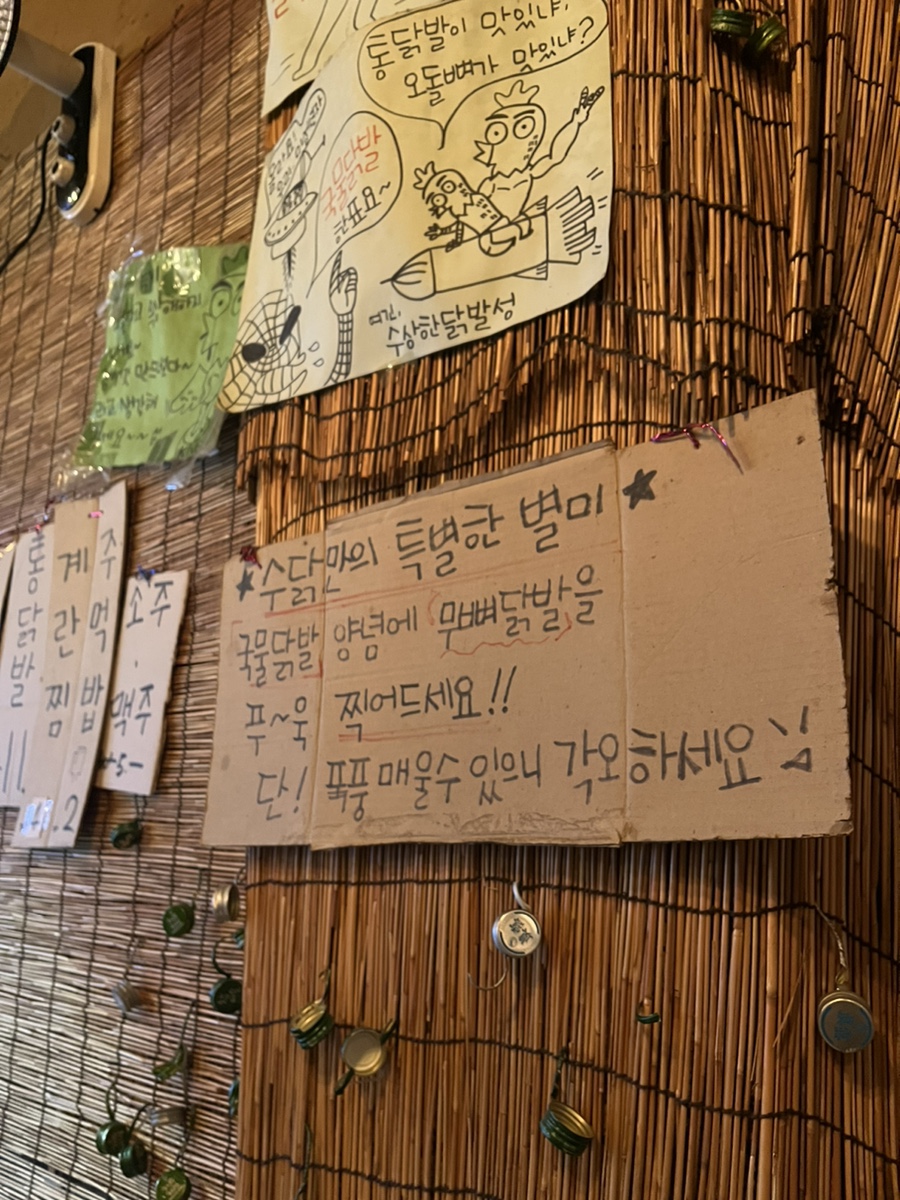 통닭발이 맛있냐,
오돌뼈가 맛있냐?
국물닭발
한표요~
여긴,
수상한닭발성
★수닭만의 특별한 별미★
국물닭발 양념에 무뼈닭발을
푸~욱 찍어드세요!!
단! 푹풍매울수 있으니 각오하세요
통닭발
계란찜
주먹밥
소주.맥주